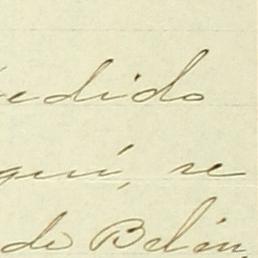 edido
quí, se
de Belén,